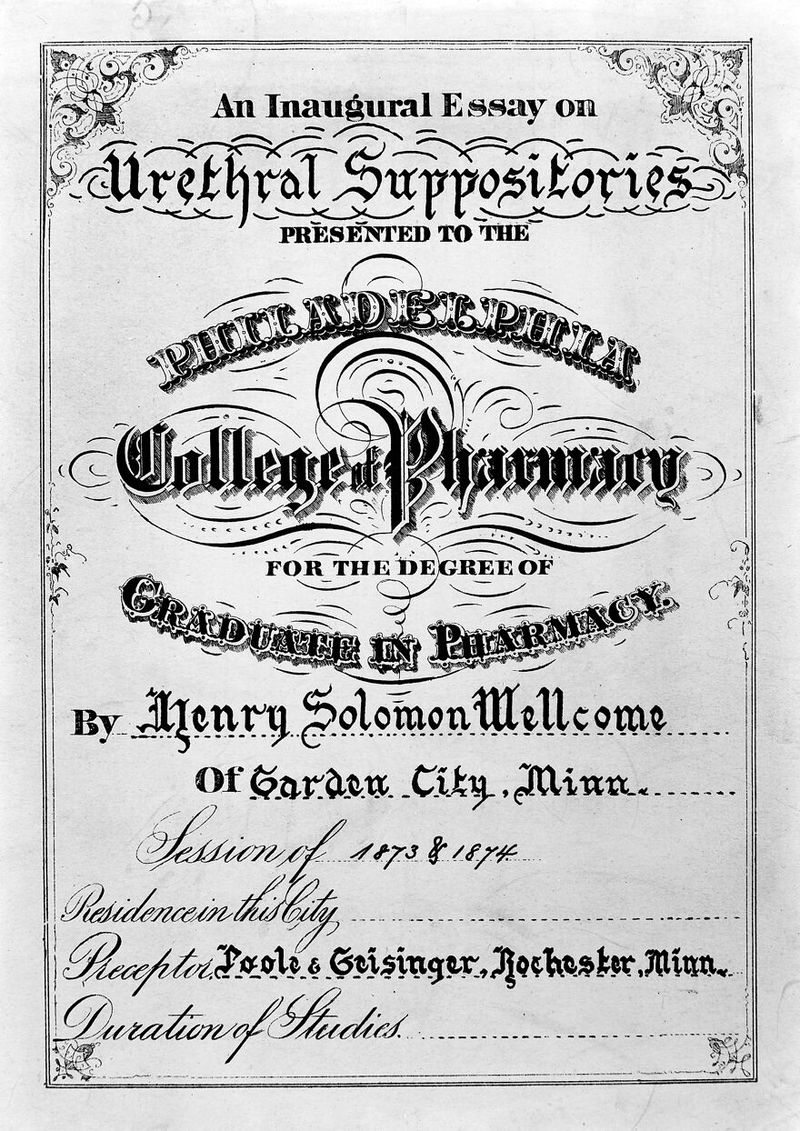 An Inaugural Essay on
Urethral Suppositories
PRESENTED TO THE
PHILADELPHIA
College of Pharmacy
FOR THE DEGREE OF
GRADUATE IN PHARMACY.
By Henry Solomon Wellcome
Of Garden City, Minn.
Session of 1873 & 1874.
Residence in this City
Preceptor, Poole & Geisinger, Rochester, Minn.
Duration of Studies.